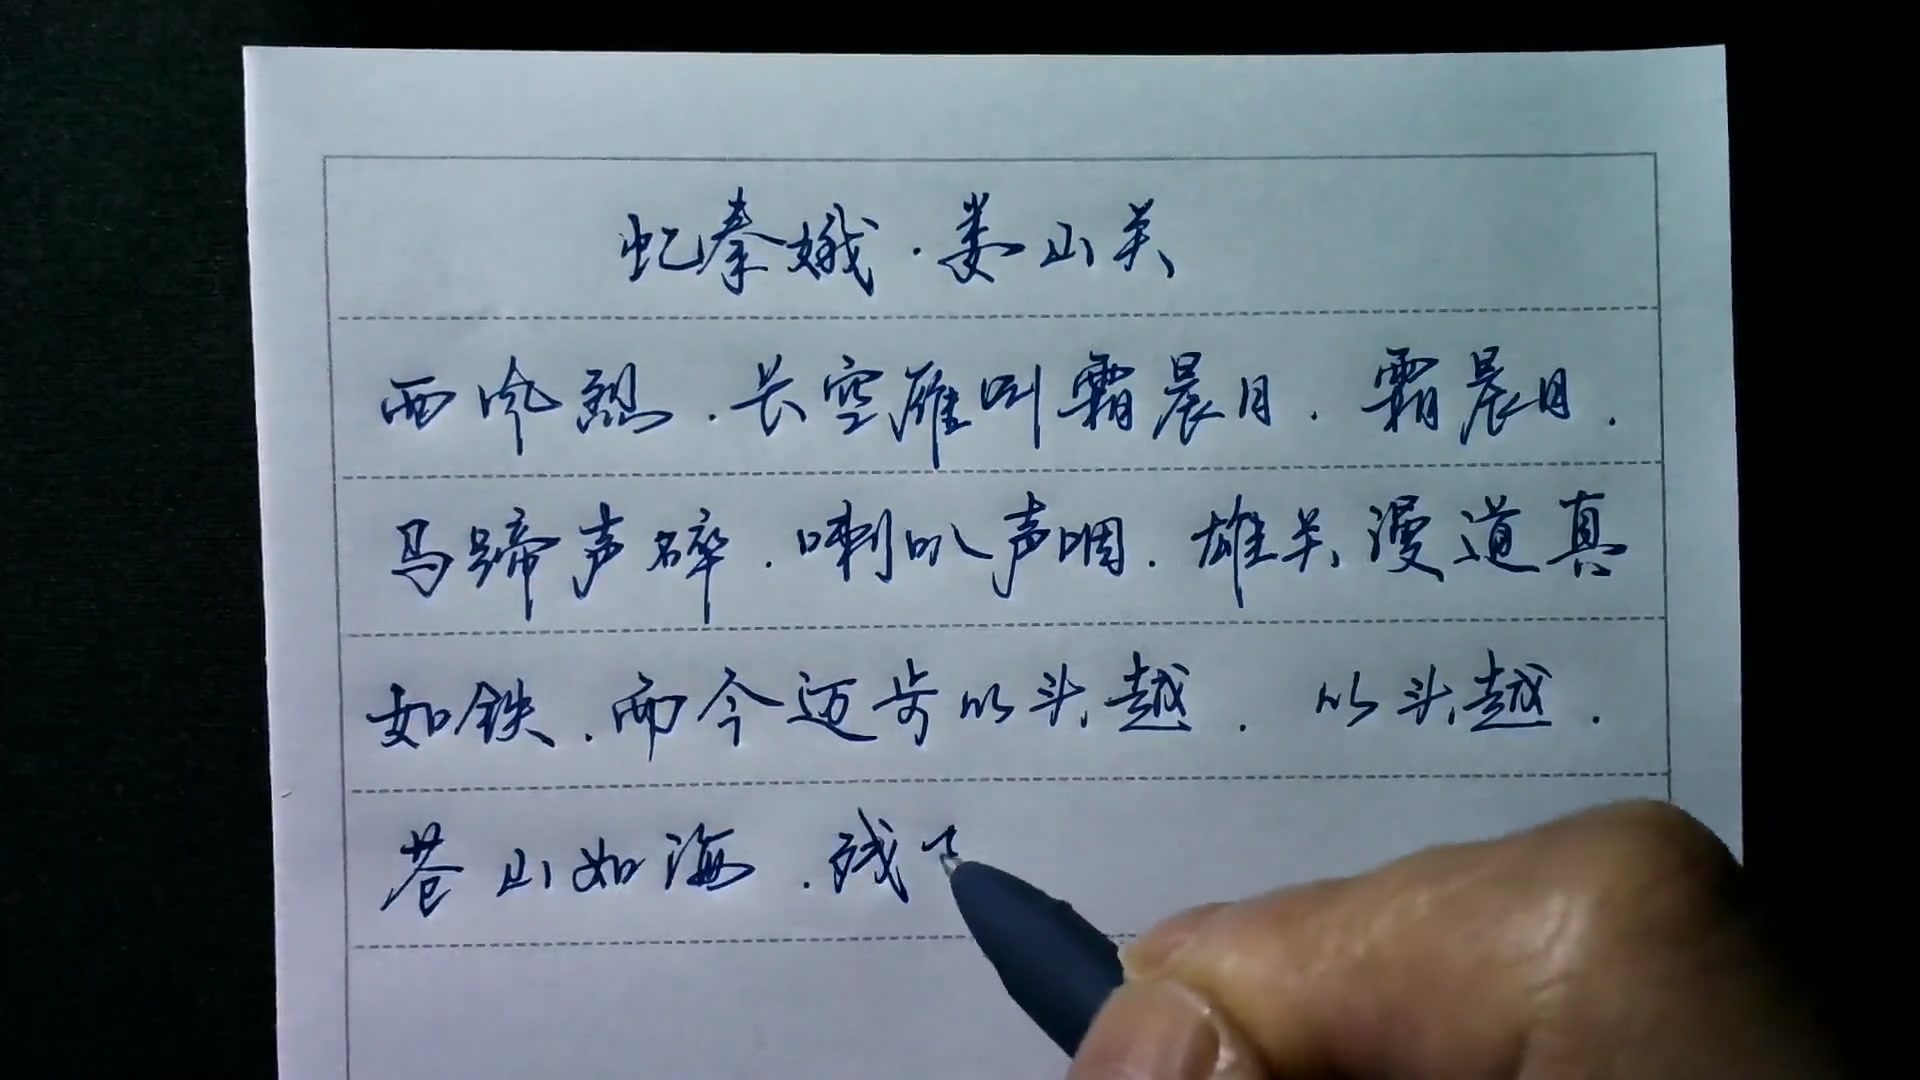 忆秦娥·娄山关
西风烈.长空雁叫霜晨月.霜晨月.
马蹄声碎.喇叭声咽.雄关漫道真
如铁.而今迈步从头越.从头越.
苍山如海.残